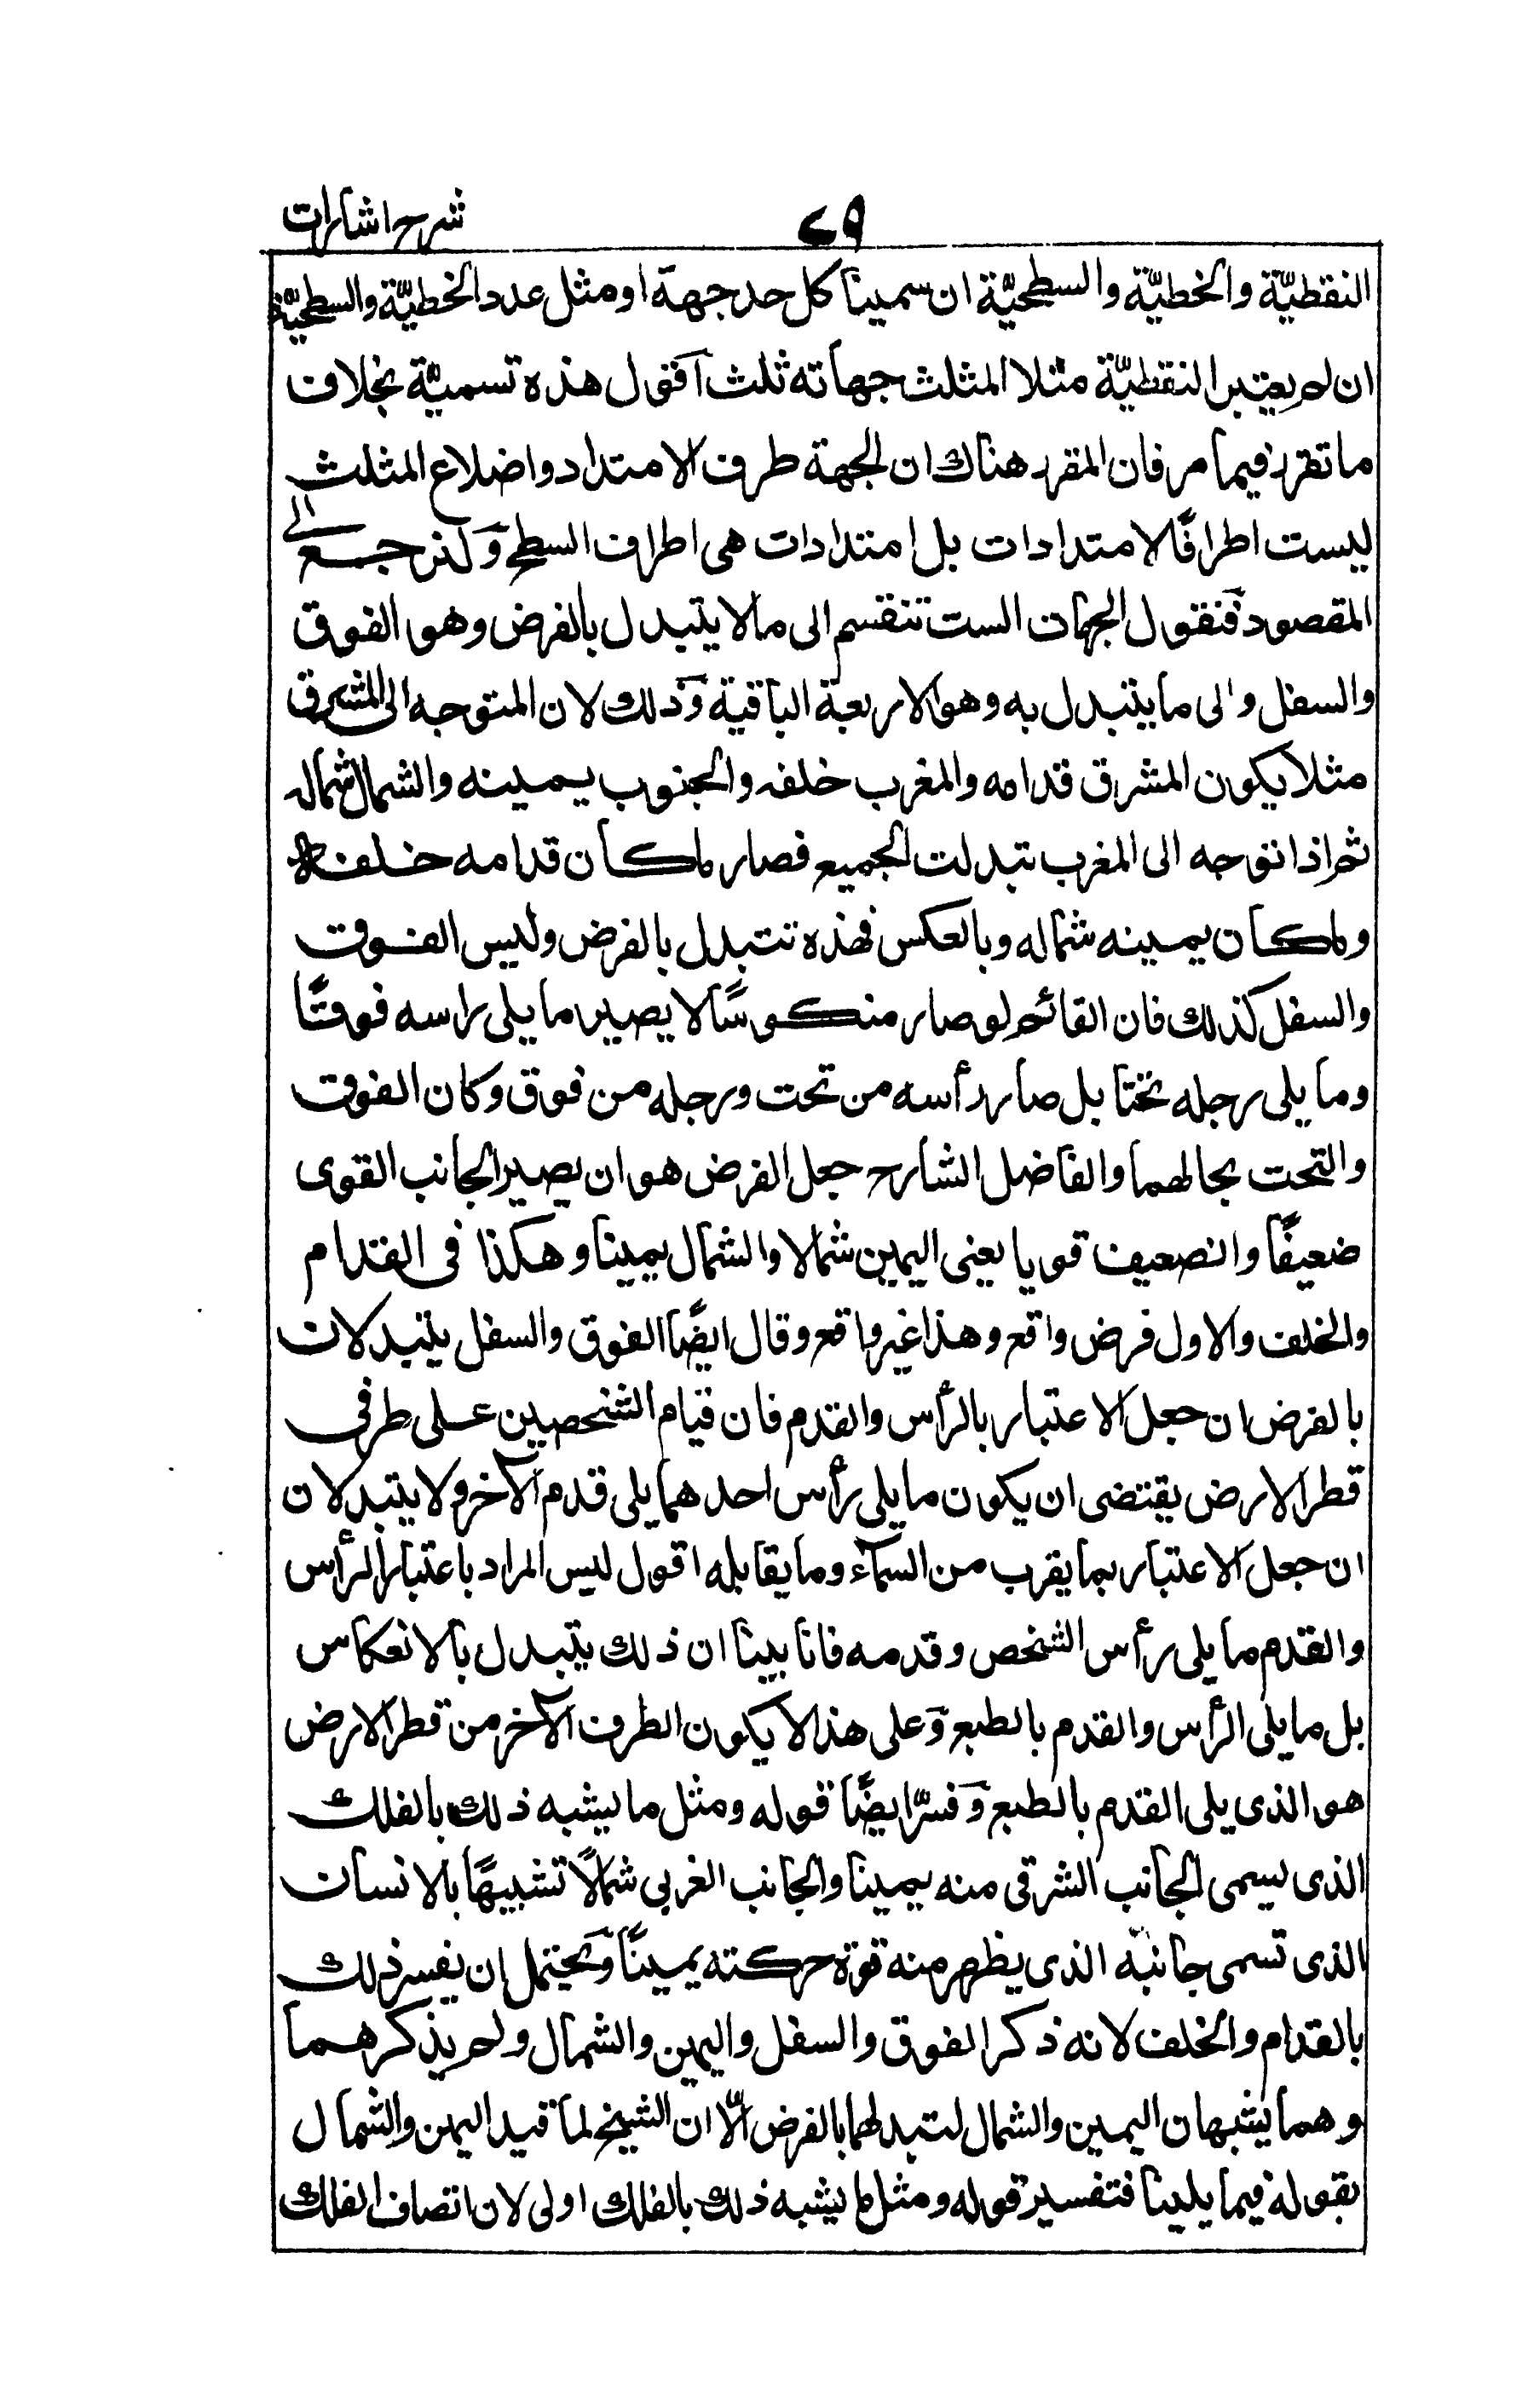 شرح اشارات
٧٩
النقطيّة والخطيّة والسطحيّة ان سمينا كل حد جهة او مثل عدد الخطيّة والسطحيّة
ان لم يعتبر النقطيّة مثلا المثلث جهاته ثلث اقول هذه تسميّة بخلاف
ما تقرر فيما مر فان المقرر هناك ان الجهة طرف الامتداد واضلاع المثلث
ليست اطرافًا لامتدادات بل امتدادات هى اطراف السطح ولنرجع الى
المقصود فنقول الجهات الست تنقسم الى ما لا يتبدل بالفرض وهو الفوق
والسفل والى ما يتبدل به وهو الاربعة الباقية وذلك لان المتوجه الى المشرق
مثلا يكون المشرق قدامه والمغرب خلفه والجنوب يمينه والشمال شماله
ثم اذا توجه الى المغرب تبدلت الجميع فصار ما كان قدامه خلفه
وما كان يمينه شماله وبالعكس فهذه تتبدل بالفرض وليس الفوق
والسفل كذلك فان القائم لو صار منكوسًا لا يصير ما يلى راسه فوقًا
وما يلى رجله تحتا بل صار رأسه من تحت ورجله من فوق وكان الفوق
والتحت بحالهما والفاضل الشارح جعل الفرض هو ان يصير الجانب القوى
ضعيفًا والضعيف قويا يعنى اليمين شمالا والشمال يمينا وهكذا فى القدام
والخلف والاول فرض واقع وهذا غير واقع وقال ايضًا الفوق والسفل يتبدلان
بالفرض ان جعل الاعتبار بالرأس والقدم فان قيام الشخصين على طرفى
قطر الارض يقتضى ان يكون ما يلى رأس احدهما يلى قدم الآخر ولا يتبدلان
ان جعل الاعتبار بما يقرب من السمآء وما يقابله اقول ليس المراد باعتبار الرأس
والقدم ما يلى رأس الشخص وقدمه فانا بينا ان ذلك يتبدل بالانعكاس
بل ما يلى الرأس والقدم بالطبع وعلى هذا لا يكون الطرف الآخر من قطر الارض
هو الذى يلى القدم بالطبع وفسّر ايضًا قوله ومثل ما يشبه ذلك بالفلك
الذى يسمى الجانب الشرقى منه يمينا والجانب الغربى شمالًا تشبيهًا بالانسان
الذى تسمى جانبه الذى يظهر منه قوة حركته يمينًا ويحتمل ان يفسر ذلك
بالقدام والخلف لانه ذكر الفوق والسفل واليمين والشمال ولم يذكرهما
وهما يشبهان اليمين والشمال لتبدلهما بالفرض الّا ان الشيخ لما قيد اليمين والشمال
بقوله فيما يلينا فتفسير قوله ومثل ما يشبه ذلك بالفلك اولى لان اتصاف الفلك